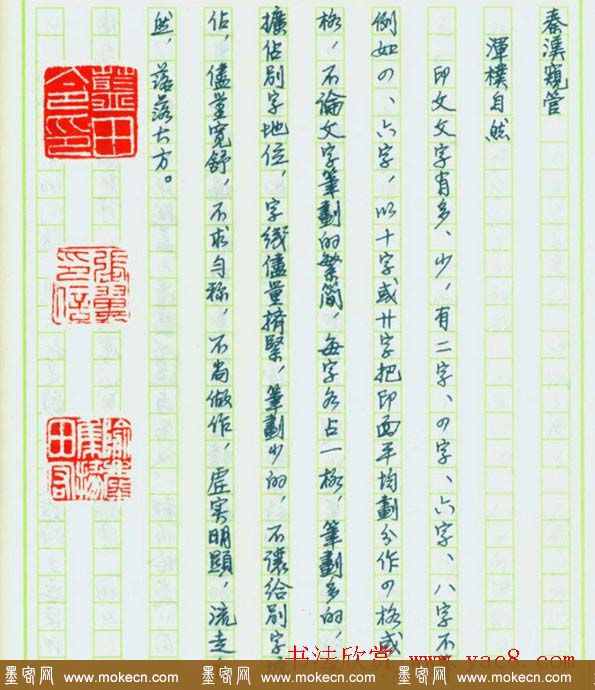 秦漢窺管
渾樸自然
印文文字有多、少，有二字、四字、六字、八字不
例如四、六字，以十字或廿字把印面平均劃分作四格或
格，不論文字筆劃的繁簡，每字各占一格，筆劃多的，
擴佔別字地位，字綫儘量擠緊，筆劃少的，不讓給別字
佔，儘量寬舒，不求勻称，不尚做作，虛实明顯，流走
然，落落大方。
書法欣赏 www.yac8.com
墨客网 www.mokecn.com 墨客网 www.mokecn.com 墨客网 www.mokecn.com